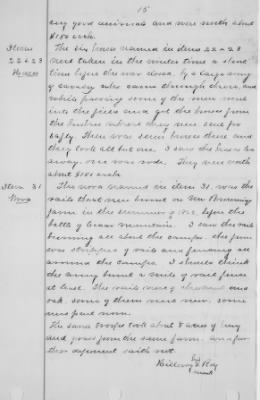 15
any good animals and were worth about
$150 each.
Items 22 & 23 Horses
The six horses named in items 22 & 23
were taken in the winter time a short
time before the war closed, by a large army
of cavalry who came through there, and
while passing some of the men went
into the field and got the horses from
the where they were sent for
safety. There was seven horses there and
they took all but one. I saw the horses
away. one was rode. They were worth
about $150 each.
Item 31 Wood
The wood named in item 31. was the
rails that were burnt on the
farm in the summer of 1862, before the
battle of Cedar Mountain. I saw the rails
burning all about the camps. the farm
was stripped of rails and fencing all
around the camps. I should think
the army burnt a mile of rail fence
at least. The rails were of chestnut and
oak. some of them were new. some
was past worn.
The same troops took about 8 acres of
and grass from the same farm. and further
this deponent saith not.
his
mark